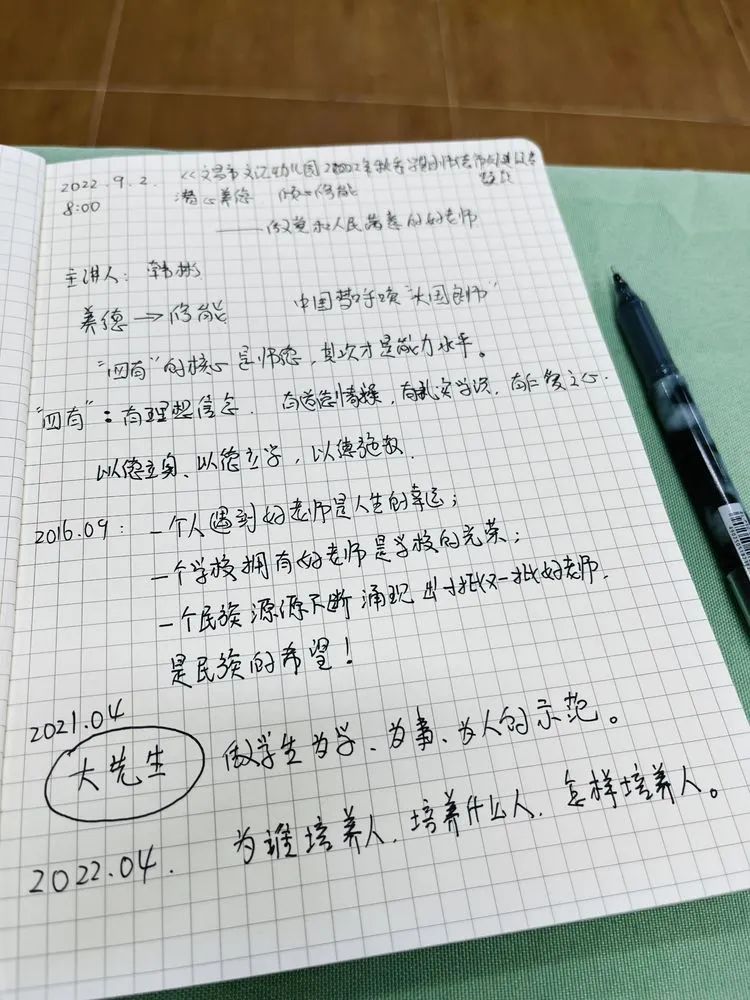 2022.9.2. 《文昌市文江幼儿园2022年秋季学期师德师风建设专
8:00 潜心养德 倾心修能
——做党和人民满意的好老师
主讲人：韩彬
养德→修能 中国梦呼唤"大国良师"
"四有"的核心是师德，其次才是能力水平。
"四有"：有理想信念．有道德情操，有扎实学识，有仁爱之心．
以德立身、以德立学，以德施教．
2016.09：一个人遇到好老师是人生的幸运；
一个学校拥有好老师是学校的光荣；
一个民族源源不断涌现出一批又一批好老师．
是民族的希望！
2021.04
大先生 做学生为学、为事、为人的示范。
2022.04． 为谁培养人．培养什么人．怎样培养人。